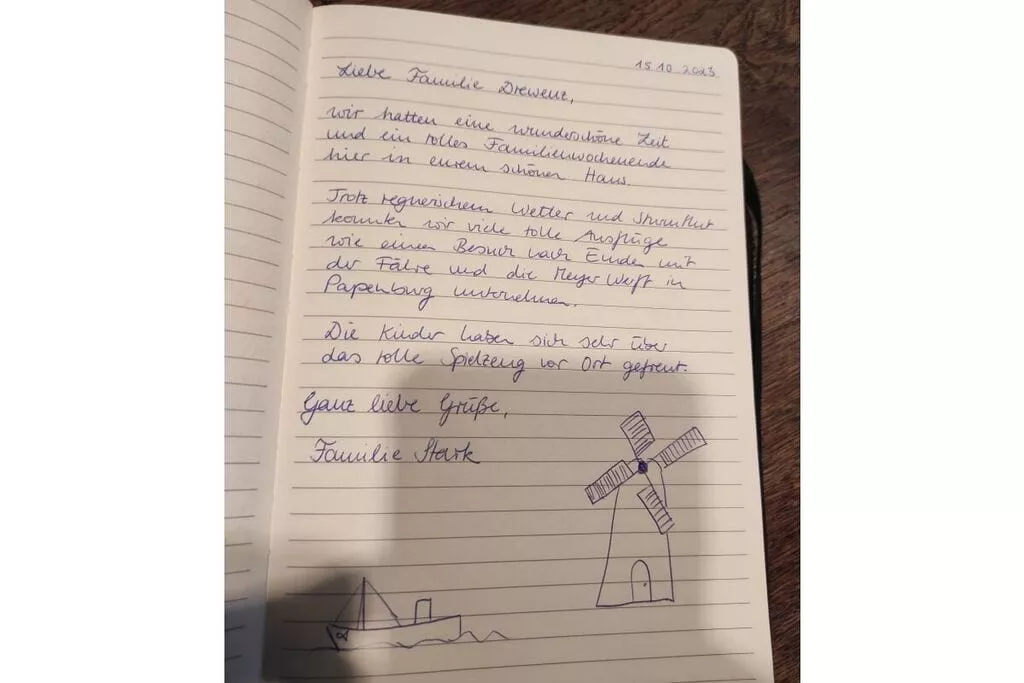 15.10.2023
Liebe Familie Drewenz,
wir hatten eine wunderschöne Zeit
und ein tolles Familienwochenende
hier in eurem schönen Haus.
Trotz regnerischem Wetter und Sturmflut
konnten wir viele tolle Ausflüge
wie einen Besuch nach Emden mit
der Fähre und die Meyer Werft in
Papenburg unternehmen.
Die Kinder haben sich sehr über
das tolle Spielzeug vor Ort gefreut.
Ganz liebe Grüße,
Familie Stark